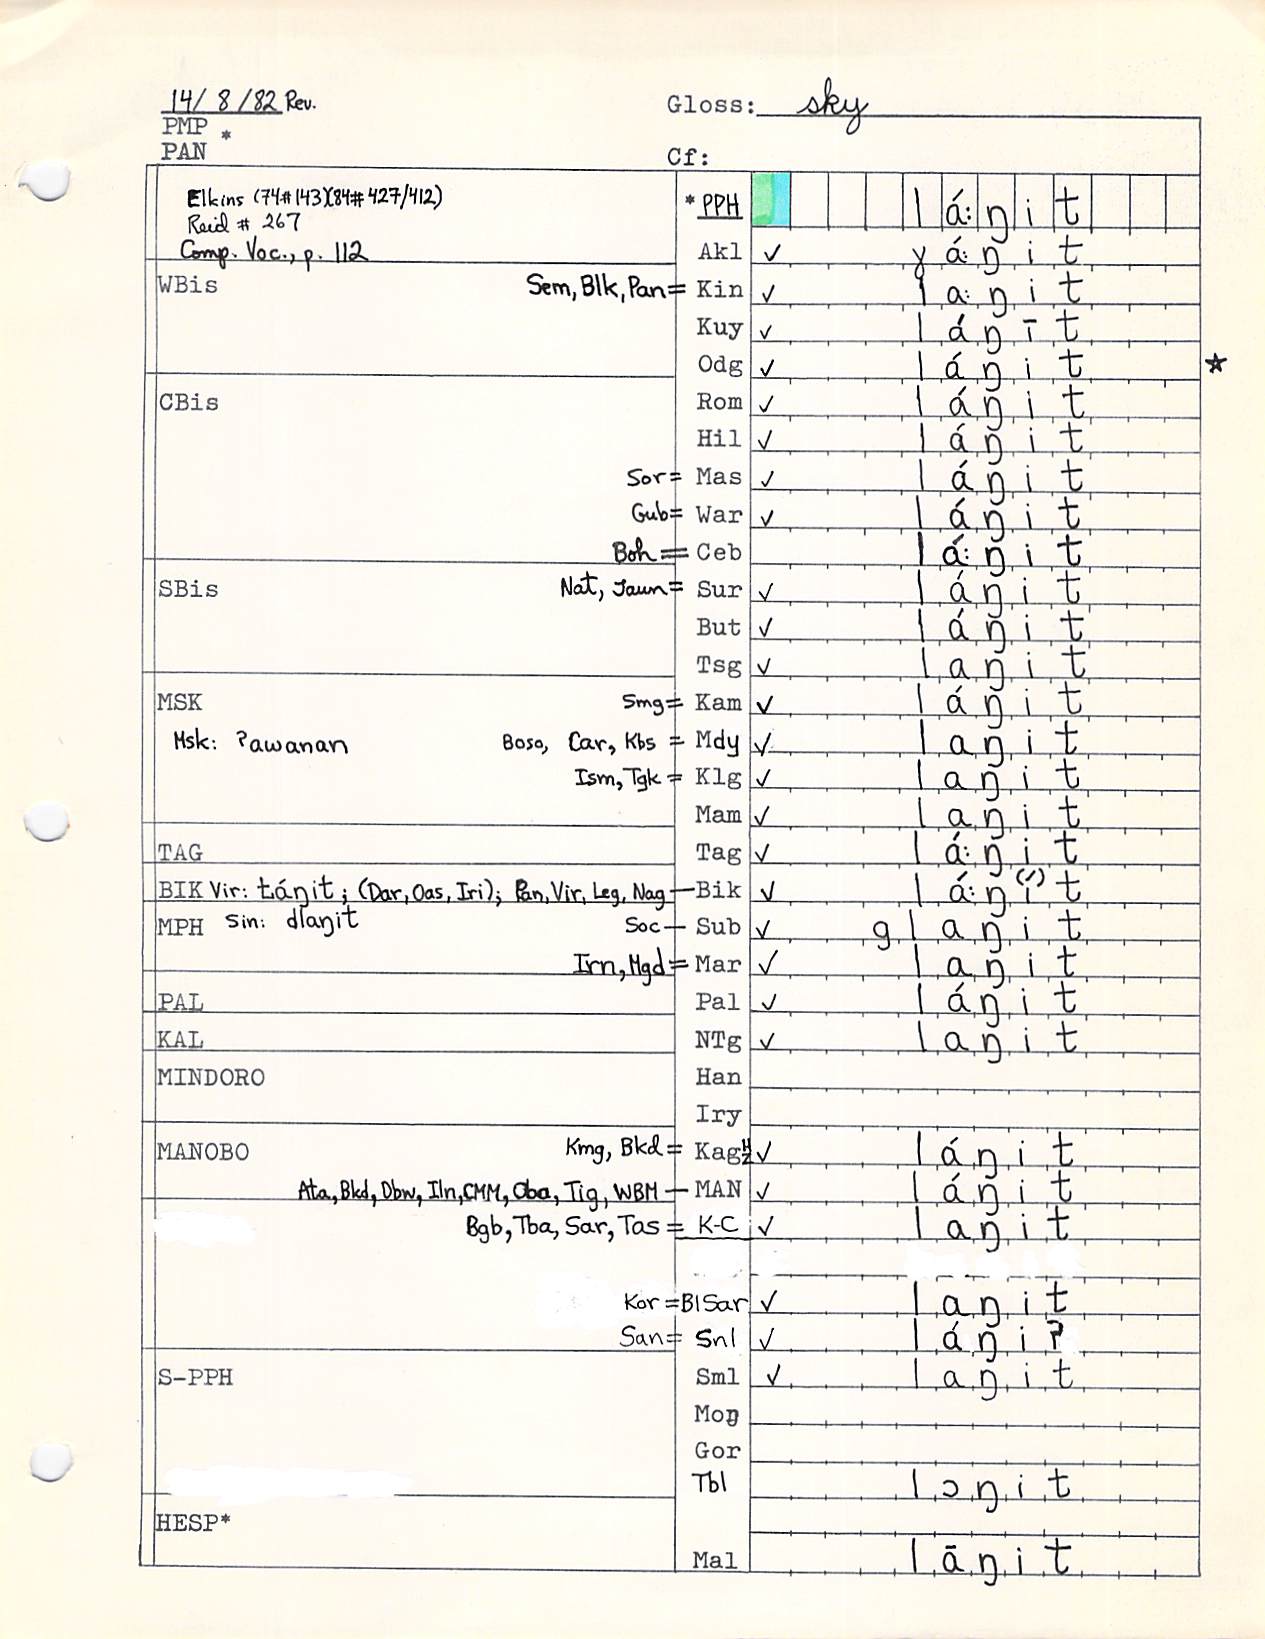 14/ 8 /82 Rev. Gloss: sky
PMP *
PAN Cf:
Elkins (74#143)(84#427/412) *PPH lá:ŋit
Reid # 267
Comp. Voc., p. 112 Akl ✓ ɣá:ŋit
WBis Sem, Blk, Pan = Kin ✓ la:ŋit
Kuy ✓ láŋīt
Odg ✓ láŋit ★
CBis Rom ✓ láŋit
Hil ✓ láŋit
Sor = Mas ✓ láŋit
Gub = War ✓ láŋit
Boh = Ceb lá:ŋit
SBis Nat, Jaun = Sur ✓ láŋit
But ✓ láŋit
Tsg ✓ laŋit
MSK Smg = Kam ✓ láŋit
Msk: ʔawanan Boso, Car, Kbs = Mdy ✓ laŋit
Ism, Tgk = Klg ✓ laŋit
Mam ✓ laŋit
TAG Tag ✓ lá:ŋit
BIK Vir: táŋit; (Dar, Oas, Iri); Pan, Vir, Leg, Nag — Bik ✓ lá:ŋi(́)t
MPH Sin: dlaŋit Soc — Sub ✓ glaŋit
Irn, Mgd = Mar ✓ laŋit
PAL Pal ✓ láŋit
KAL NTg ✓ laŋit
MINDORO Han
Iry
MANOBO Kmg, Bkd = Kag ✓ láŋit
Ata, Bkd, Dbw, Iln, CMM, Oba, Tig, WBM — MAN ✓ láŋit
Bgb, Tba, Sar, Tas = K-C ✓ laŋit
Kor = BlSar ✓ laŋit
San = Snl ✓ láŋiʔ
S-PPH Sml ✓ laŋit
Moŋ
Gor
Tbl lɔŋit
HESP*
Mal lāŋit